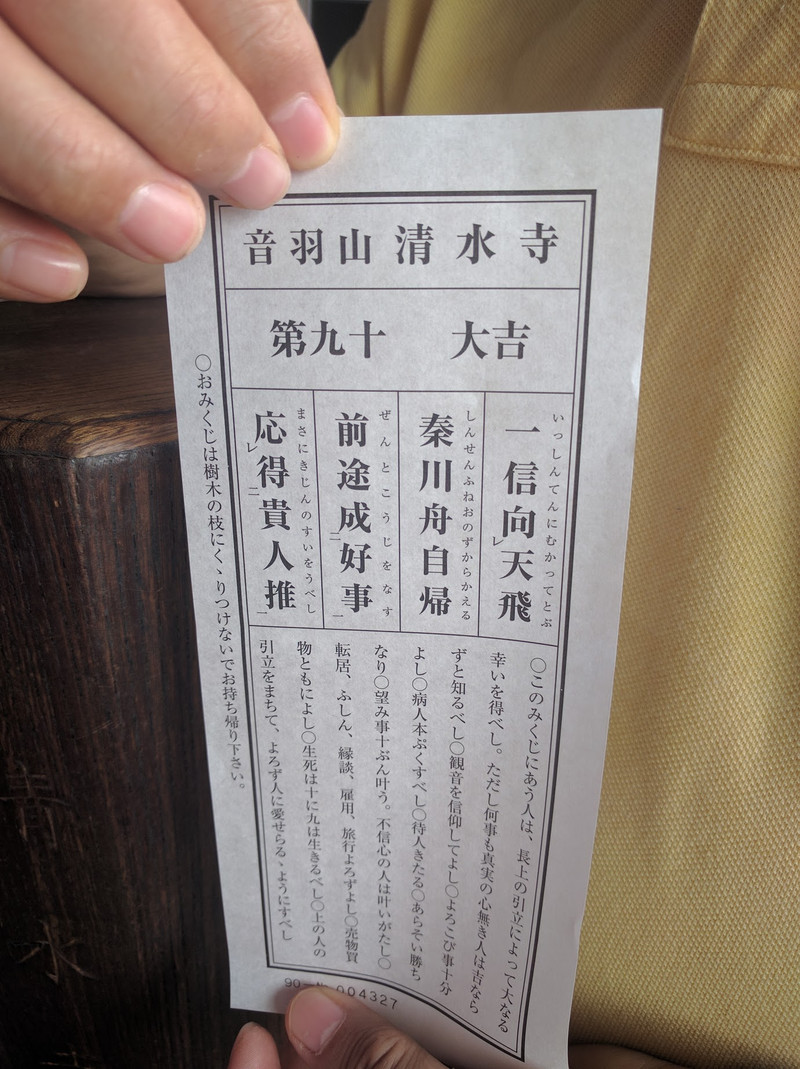 音羽山 清水寺
第九十 大吉
いっしんてんにむかってとぶ
一信向レ天飛
しんせんふねおのずからかえる
秦川舟自帰
ぜんとこうじをなす
前途成二好事一
まさにきじんのすいをうべし
応レ得二貴人推一
〇このみくじにあう人は、長上の引立によって大なる
幸いを得べし。ただし何事も真実の心無き人は吉なら
ずと知るべし〇観音を信仰してよし〇よろこび事十分
よし〇病人本ぷくすべし〇待人きたる〇あらそい勝ち
なり〇望み事十ぶん叶う。不信心の人は叶いがたし〇
転居、ふしん、縁談、雇用、旅行よろずよし〇売物買
物ともによし〇生死は十に九は生きるべし〇上の人の
引立をまちて、よろず人に愛せらるゝようにすべし
〇おみくじは樹木の枝にくゝりつけないでお持ち帰り下さい。
90
004327
清水